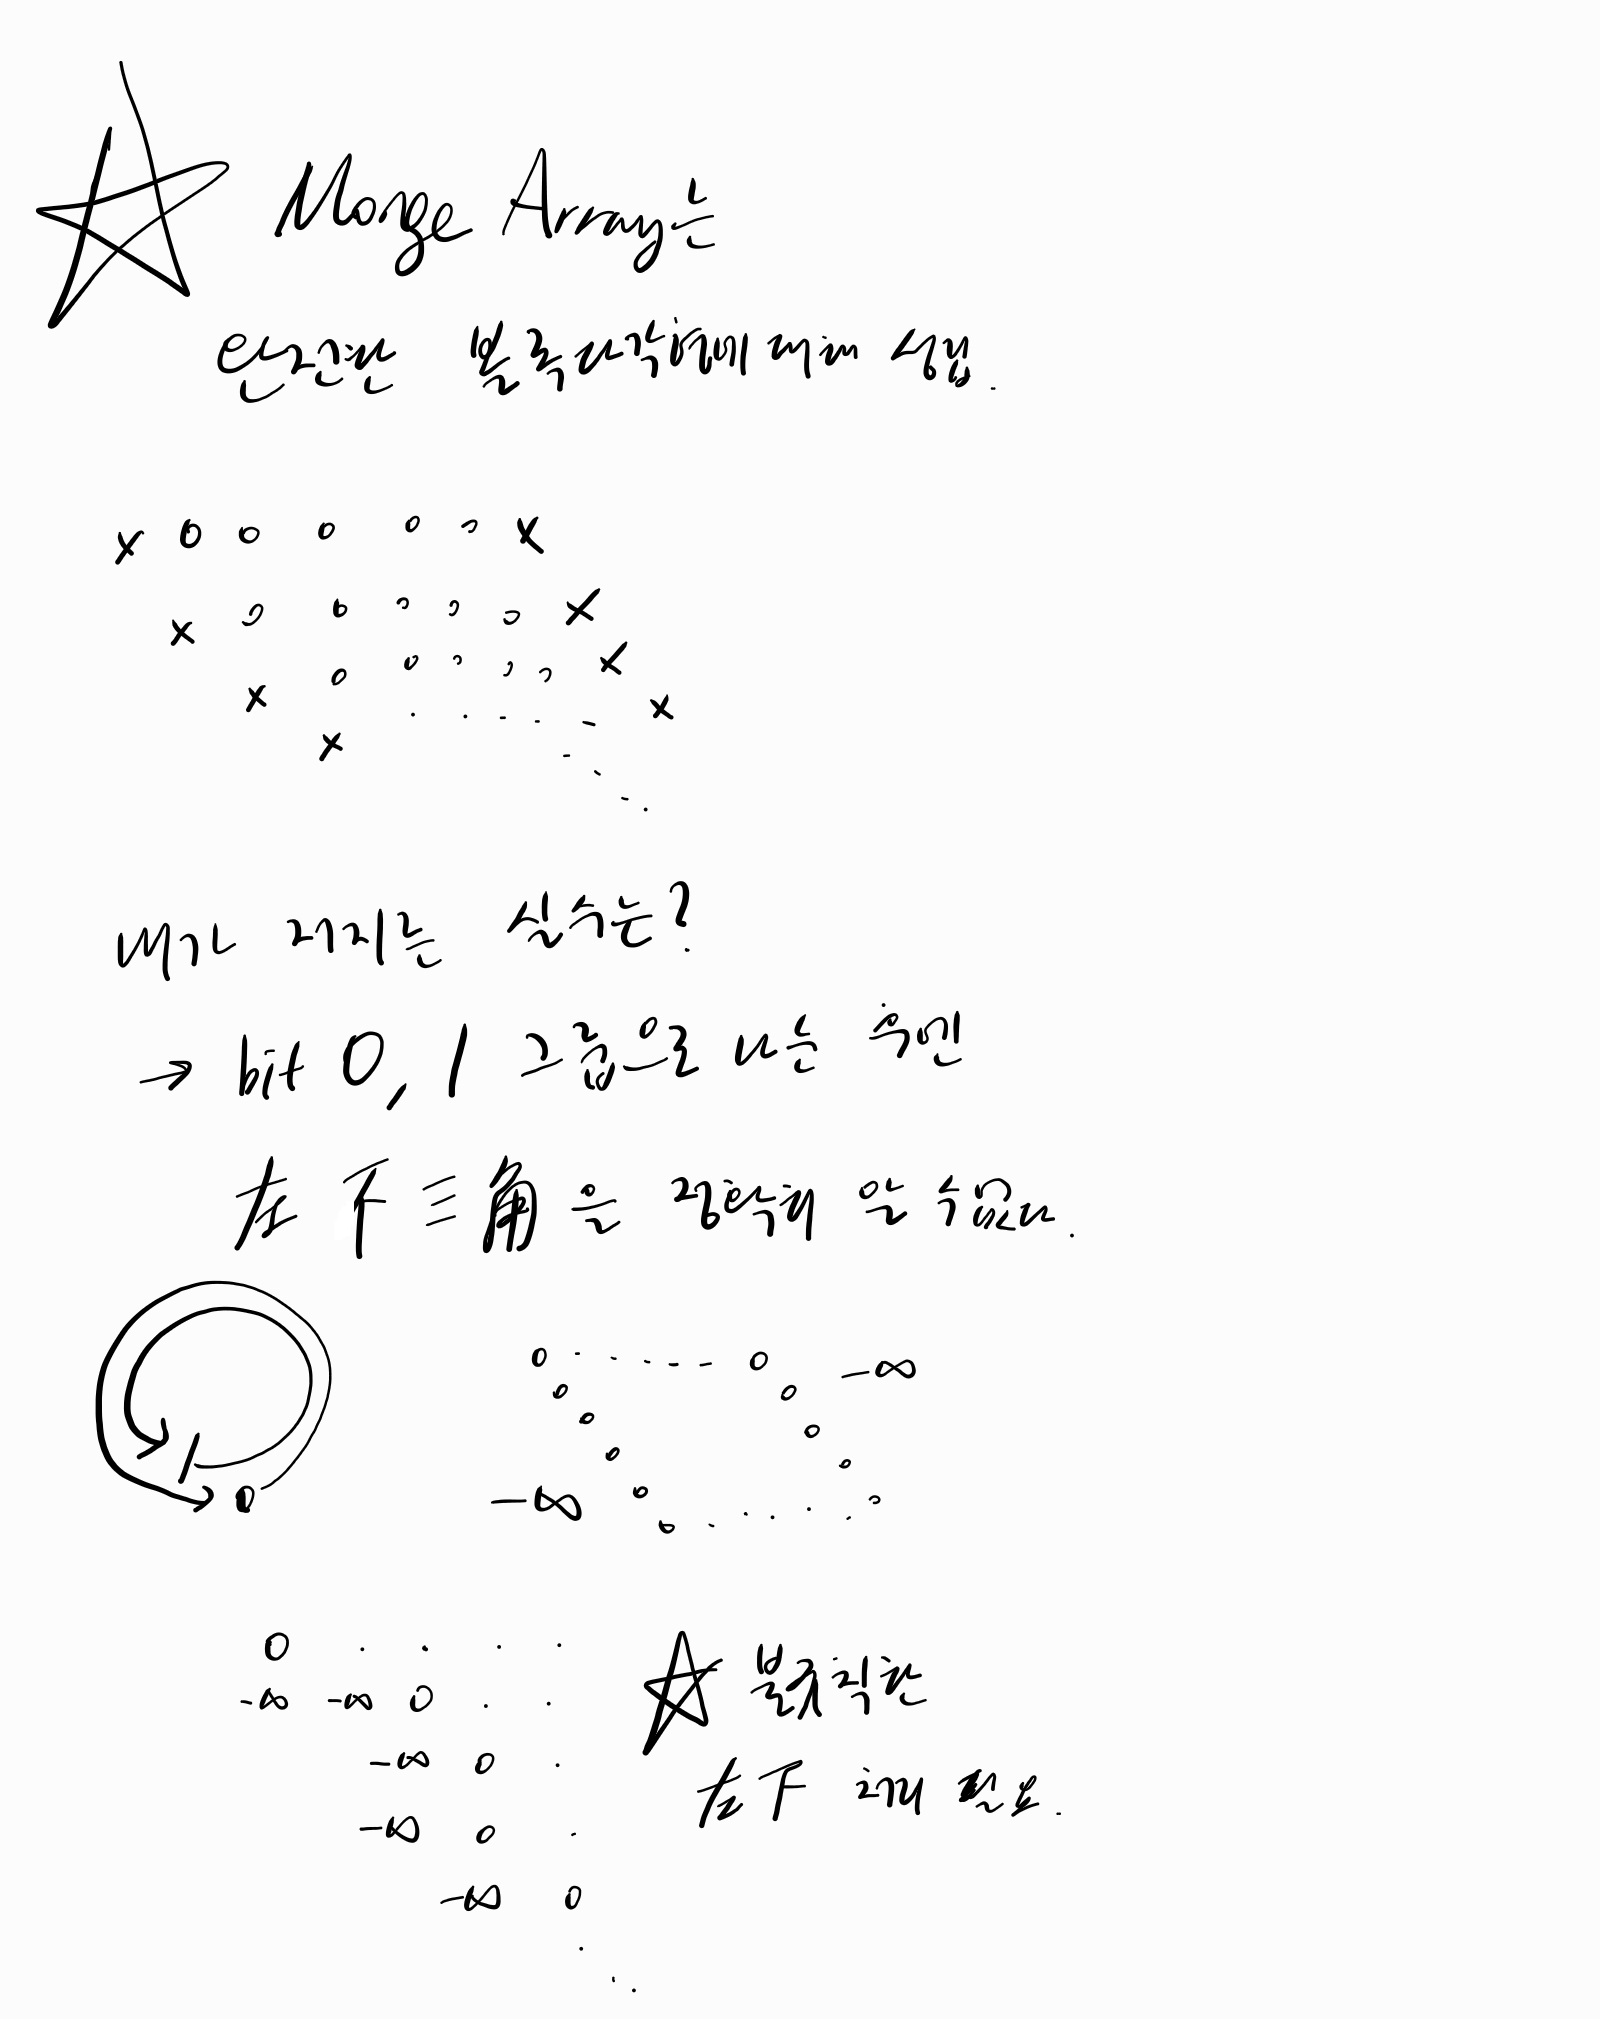 Monge Array는
완전한 볼록다각형에 대해 성립.
x o o o o o x
x o o o o o x
x o o o o o x
x . . - - - x
내가 저지르는 실수는?
→ bit 0, 1 그룹으로 나눈 후엔
左下三角은 정확히 알 수 없다.
1 0
o . . . . . o -∞
o o
o o
o o
-∞ o o
o . . . . .
0 . . . .
-∞ -∞ 0 . .
-∞ 0 .
-∞ 0 .
-∞ 0
☆ 불규칙한
左下 처리 필요.